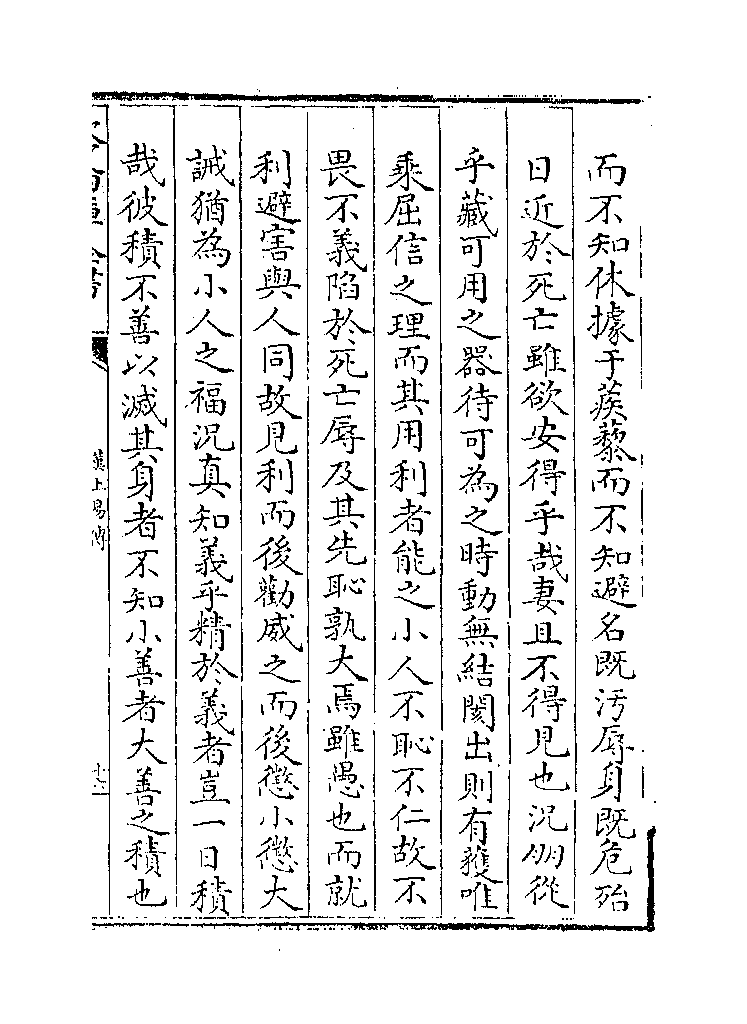 而不知休據于蒺藜而不知避名既汚辱身既危殆
日近於死亡雖欲安得乎哉妻且不得見也况朋從
乎藏可用之器待可為之時動無結閡出則有獲唯
乘屈信之理而其用利者能之小人不恥不仁故不
畏不義陷於死亡辱及其先恥孰大焉雖愚也而就
利避害與人同故見利而後勸威之而後懲小懲大
誡猶為小人之福况真知義乎精於義者豈一日積
哉彼積不善以滅其身者不知小善者大善之積也
漢上易傳